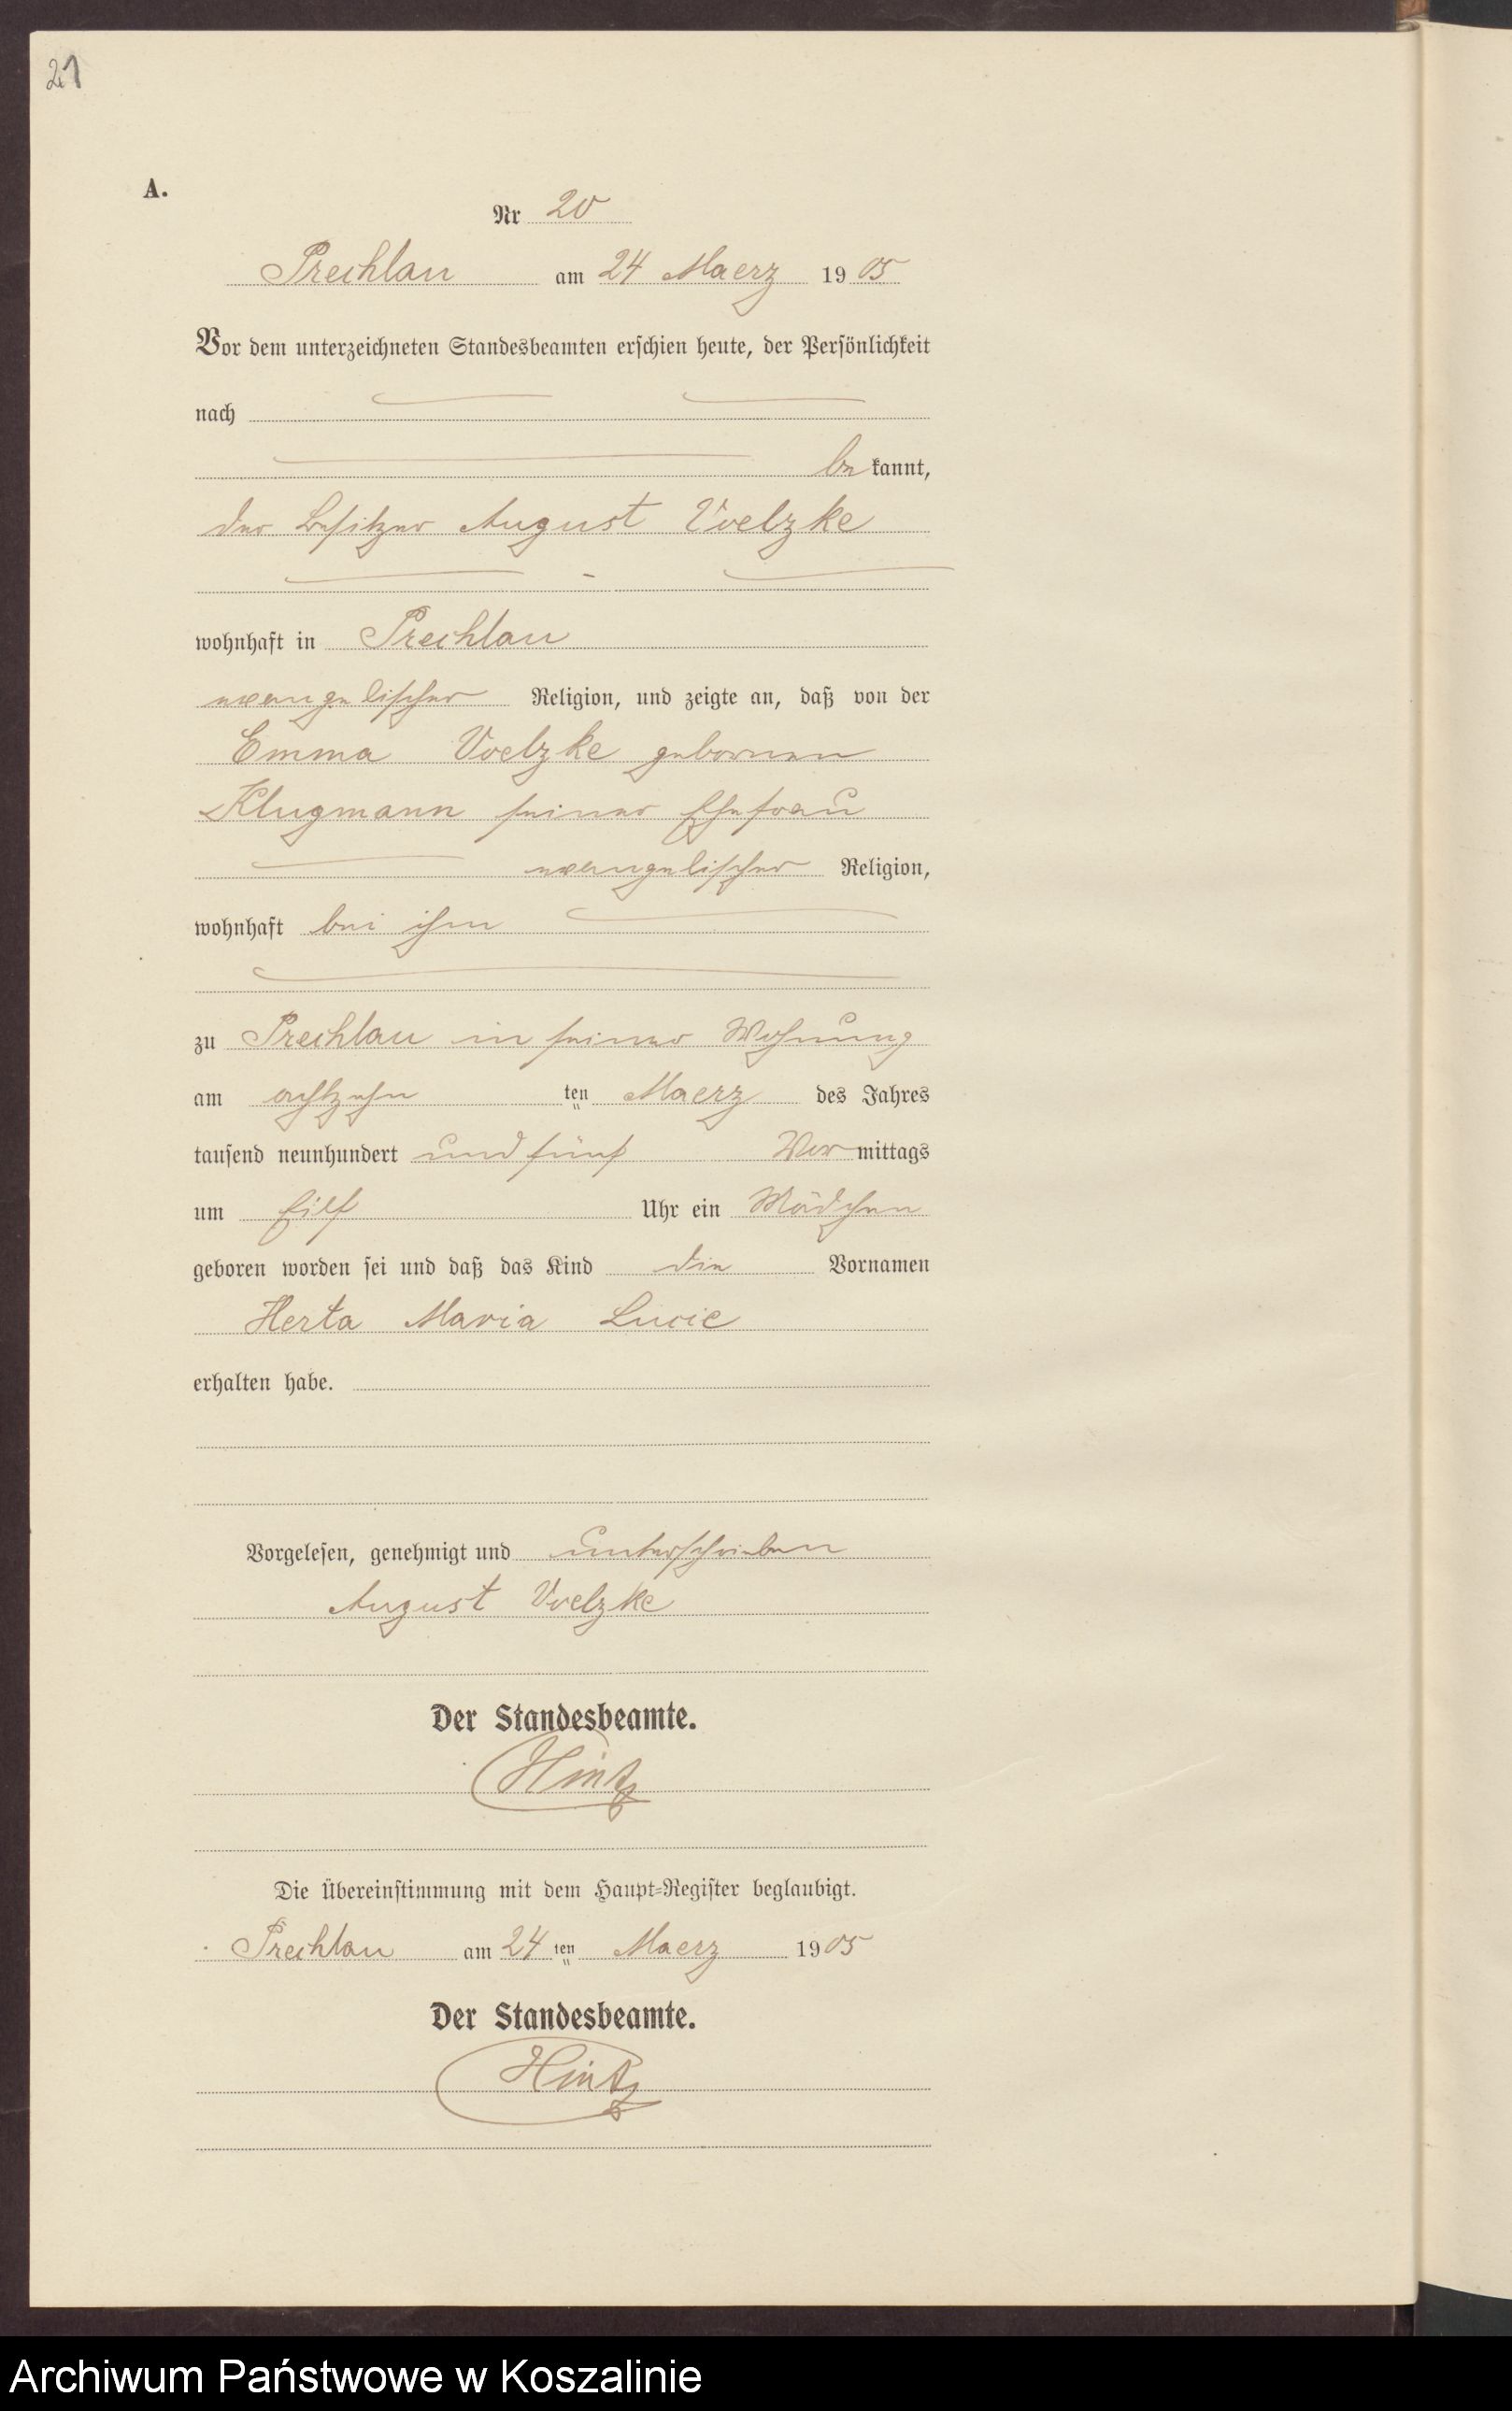 21
A.
Nr 20
Prechlau am 24 Maerz 1905
Vor dem unterzeichneten Standesbeamten erschien heute, der Persönlichkeit
nach
bekannt,
der Besitzer August Voelzke
wohnhaft in Prechlau
evangelischer Religion, und zeigte an, daß von der
Emma Voelzke gebornen
Klugmann seiner Ehefrau
evangelischer Religion,
wohnhaft bei ihm
zu Prechlau in seiner Wohnung
am achtzehn ten Maerz des Jahres
tausend neunhundert und fünf Vormittags
um Eilf Uhr ein Mädchen
geboren worden sei und daß das Kind die Vornamen
Herta Maria Lucie
erhalten habe.
Vorgelesen, genehmigt und unterschrieben
August Voelzke
Der Standesbeamte.
Hintz
Die Übereinstimmung mit dem Haupt-Register beglaubigt.
Prechlau am 24 ten Maerz 1905
Der Standesbeamte.
Hintz
Archiwum Państwowe w Koszalinie